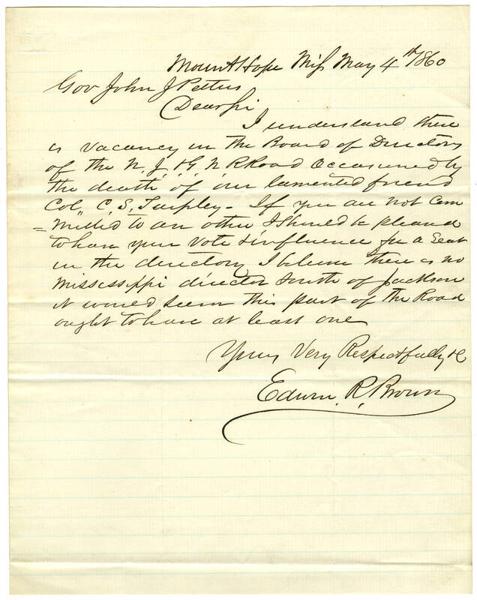 Mount Hope Miss May 4th 1860
Gov John J Pettus
Dear Sir
I understand there
is vacancy in the Board of Directors
of the N. J. & G. N R Road occasioned by
the death of our lamented friend
Col, C, S, Tarpley - If you are not Com
=mitted to an other I should be pleased
to have your vote & influence for a Seat
in the directory I believe there is no
Mississippi director South of Jackson
it would seem this part of the Road
ought to have at least one
Yours Very Respectfully &c
Edwin, R, Brown